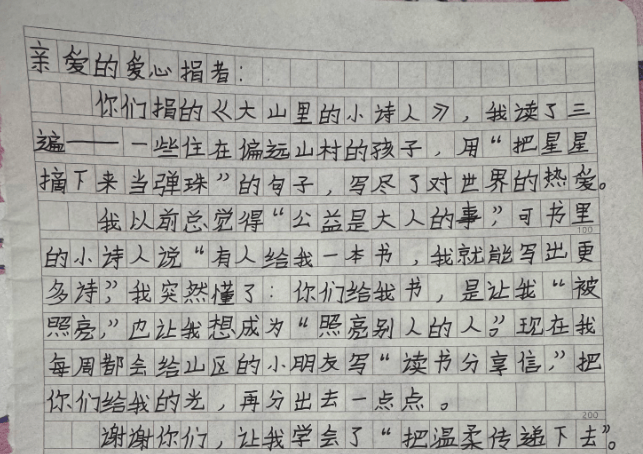 亲爱的爱心捐者：
你们捐的《大山里的小诗人》，我读了三
遍——一些住在偏远山村的孩子，用“把星星
摘下来当弹珠”的句子，写尽了对世界的热爱。
我以前总觉得“公益是大人的事”，可书里
100
的小诗人说“有人给我一本书，我就能写出更
多诗”，我突然懂了：你们给我书，是让我“被
照亮”，也让我想成为“照亮别人的人”。现在我
每周都会给山区的小朋友写“读书分享信”，把
你们给我的光，再分出去一点点。
200
谢谢你们，让我学会了“把温柔传递下去”。